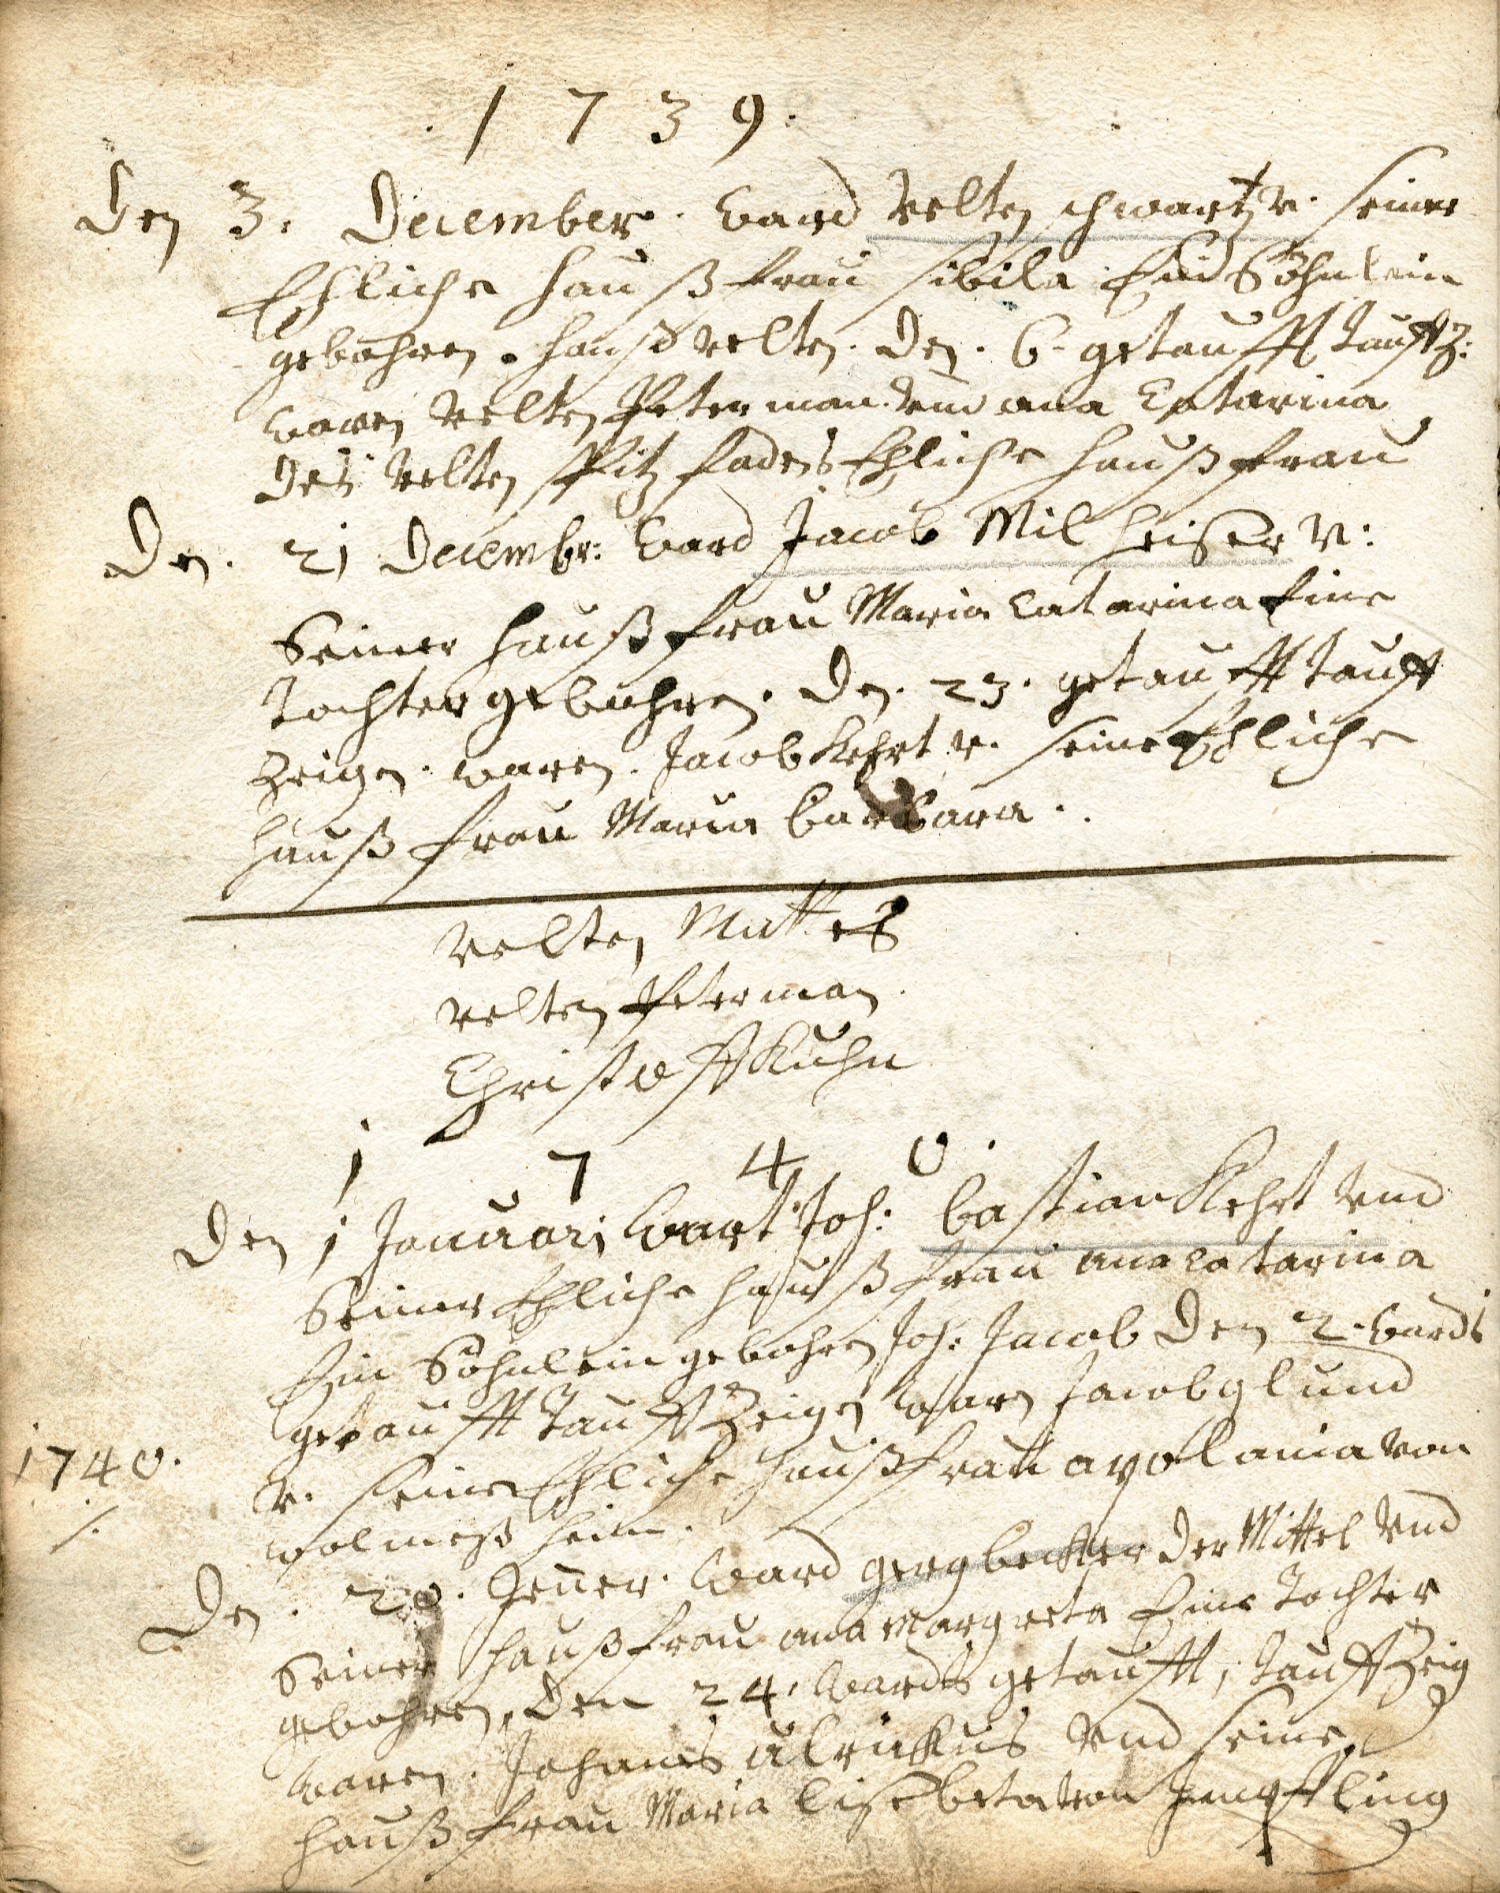 1739.
Den 3. December. Ward Velten schwartz v. seiner
Ehliche hauß frau sibila Ein Söhnlein
gebohren. hanß velten. Den. 6. getaufft tauffz:
waren Velten Peterman. und ana Catarina
des Velten Pitz fadens Ehliche hauß frau
Den. 21 Decembr: Ward Jacob Mil heiser v:
Seiner hauß frau Maria Catarina Eine
Tochter gebohren. Den. 23. getaufft tauff
Zeigen. waren. Jacob Kehrt v. seine Ehliche
hauß frau Maria barbara.
Velten Mattes
velten Peterman.
Christoff Kuhn
1740.
Den 1 Januari Wart Joh: bastian Kehrt und
Seiner Ehliche hauß frau ana catarina
Ein Söhnlein gebohren Joh: Jacob Den 2. wards
getaufft Tauff Zeigen waren Jacob glund
v. seine Ehliche haußfrau apolania von
wolmeß heim.
1740.
Den. 20. Jener. Ward gerg becker Der Mittel und
Seiner haußfrau ana Margreta Eine Tochter
gebohren, Den 24. wards getaufft, tauff Zeig
waren. Johanes ulrickus und seine
hauß frau Maria lisebeta von